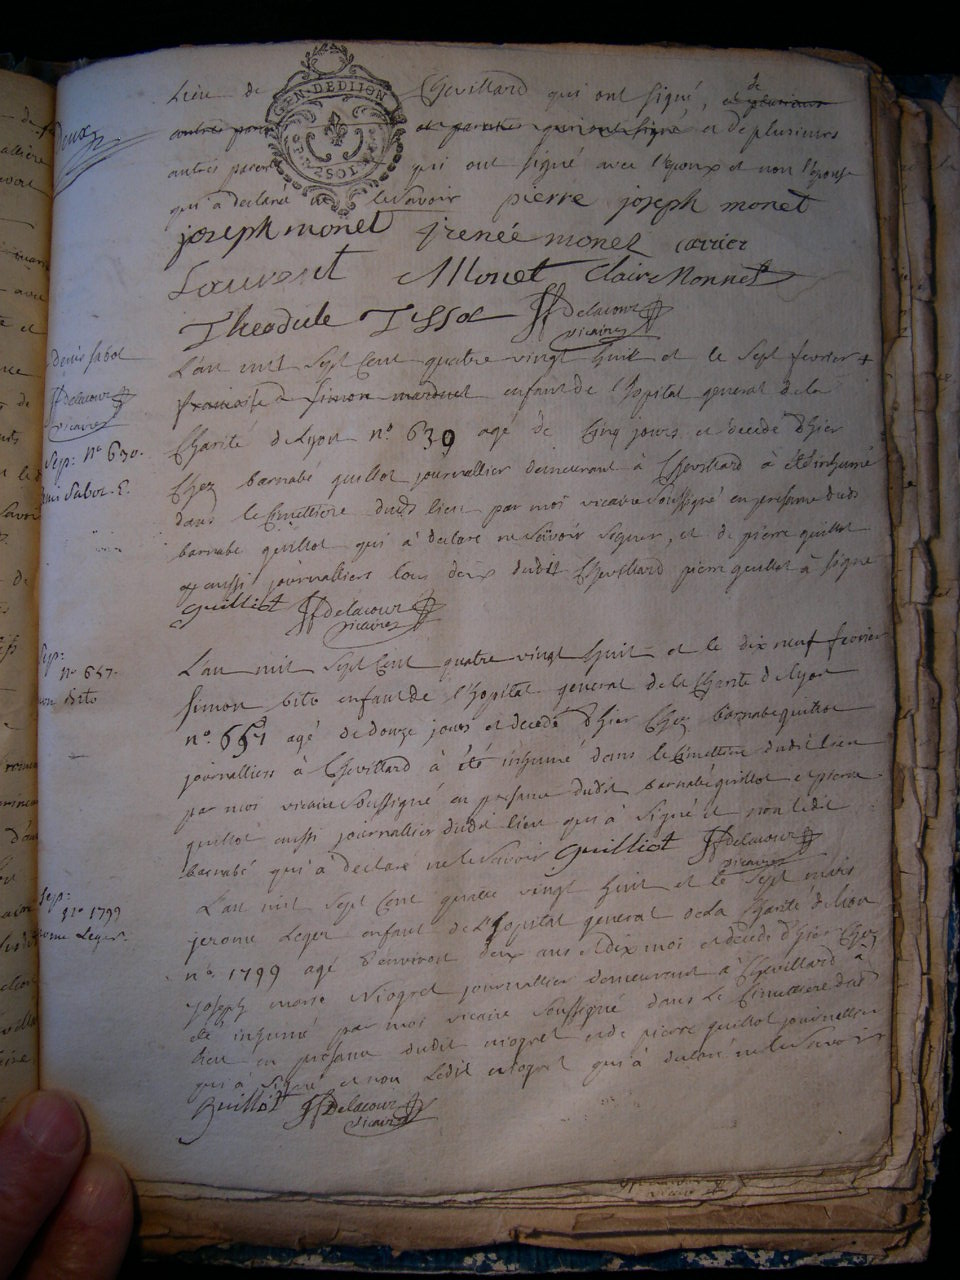 Deux
GEN·DEDIJON
2SOLS
lieu de Chevillard qui ont signé, et de plusieurs
autres paren et parente qui ont signé et de plusieurs
autres paren qui ont signé avec l'epoux et non l'epouse
qui a declaré ne le savoir pierre joseph monet
joseph monet jrenée monet carrier
Laurent Monet Claire Monnet
Theodule Tissot Delacour
vicaire
Denis sabot
Delacour
vicaire
Sep: n° 630.
Denis Sabot. E.
L'an mil sept Cent quatre vingt huit et le sept fevrier +
francoise d Simon marduel enfant de l'hopital general de la
Charité de Lyon n° 639 agé de Cinq jours et decedé d'hier
Chez barnabé guillot journallier demeurant à Chevillard à été inhumé
dans le Cimettiere dudt lieu par moi vicaire soussigné en presence dudt
barnabé guillot qui à declaré ne savoir signer, et de pierre guillot
aussi journalliers tous deux dudit Chevillard pierre guillot à signé
guilliot Delacour
vicaire
Sep:
n° 657.
bito
L'an mil sept Cent quatre vingt huit et le dix neuf fevrier
simon bito enfant de l'hopital general de la Charité de Lyon
n° 657 agé de douze jours et decedé d'hier Chez barnabé guillot
journallier à Chevillard à été inhumé dans le Cimettiere dudit lieu
par moi vicaire soussigné en presence dudit barnabé guillot et pierre
guillot aussi journallier dudit lieu qui à signé et non ledit
barnabé qui à declaré ne le savoir guilliot Delacour
vicaire
Sep:
n° 1799
Leger
L'an mil sept Cent quatre vingt huit et le sept mars
jerome Leger enfant de l'hopital general de La Charité de lion
n° 1799 agé d'environ deux ans et dix moi et decedé d'hier Chez
joseph marie niogret journallier demeurant à Chevillard à
été inhumé par moi vicaire soussigné dans le Cimettiere dudt
lieu en presence dudit niogret et de pierre guillot journallier
qui à signé et non Ledit niogret qui à declaré ne le savoir
Guilliot Delacour
vicaire